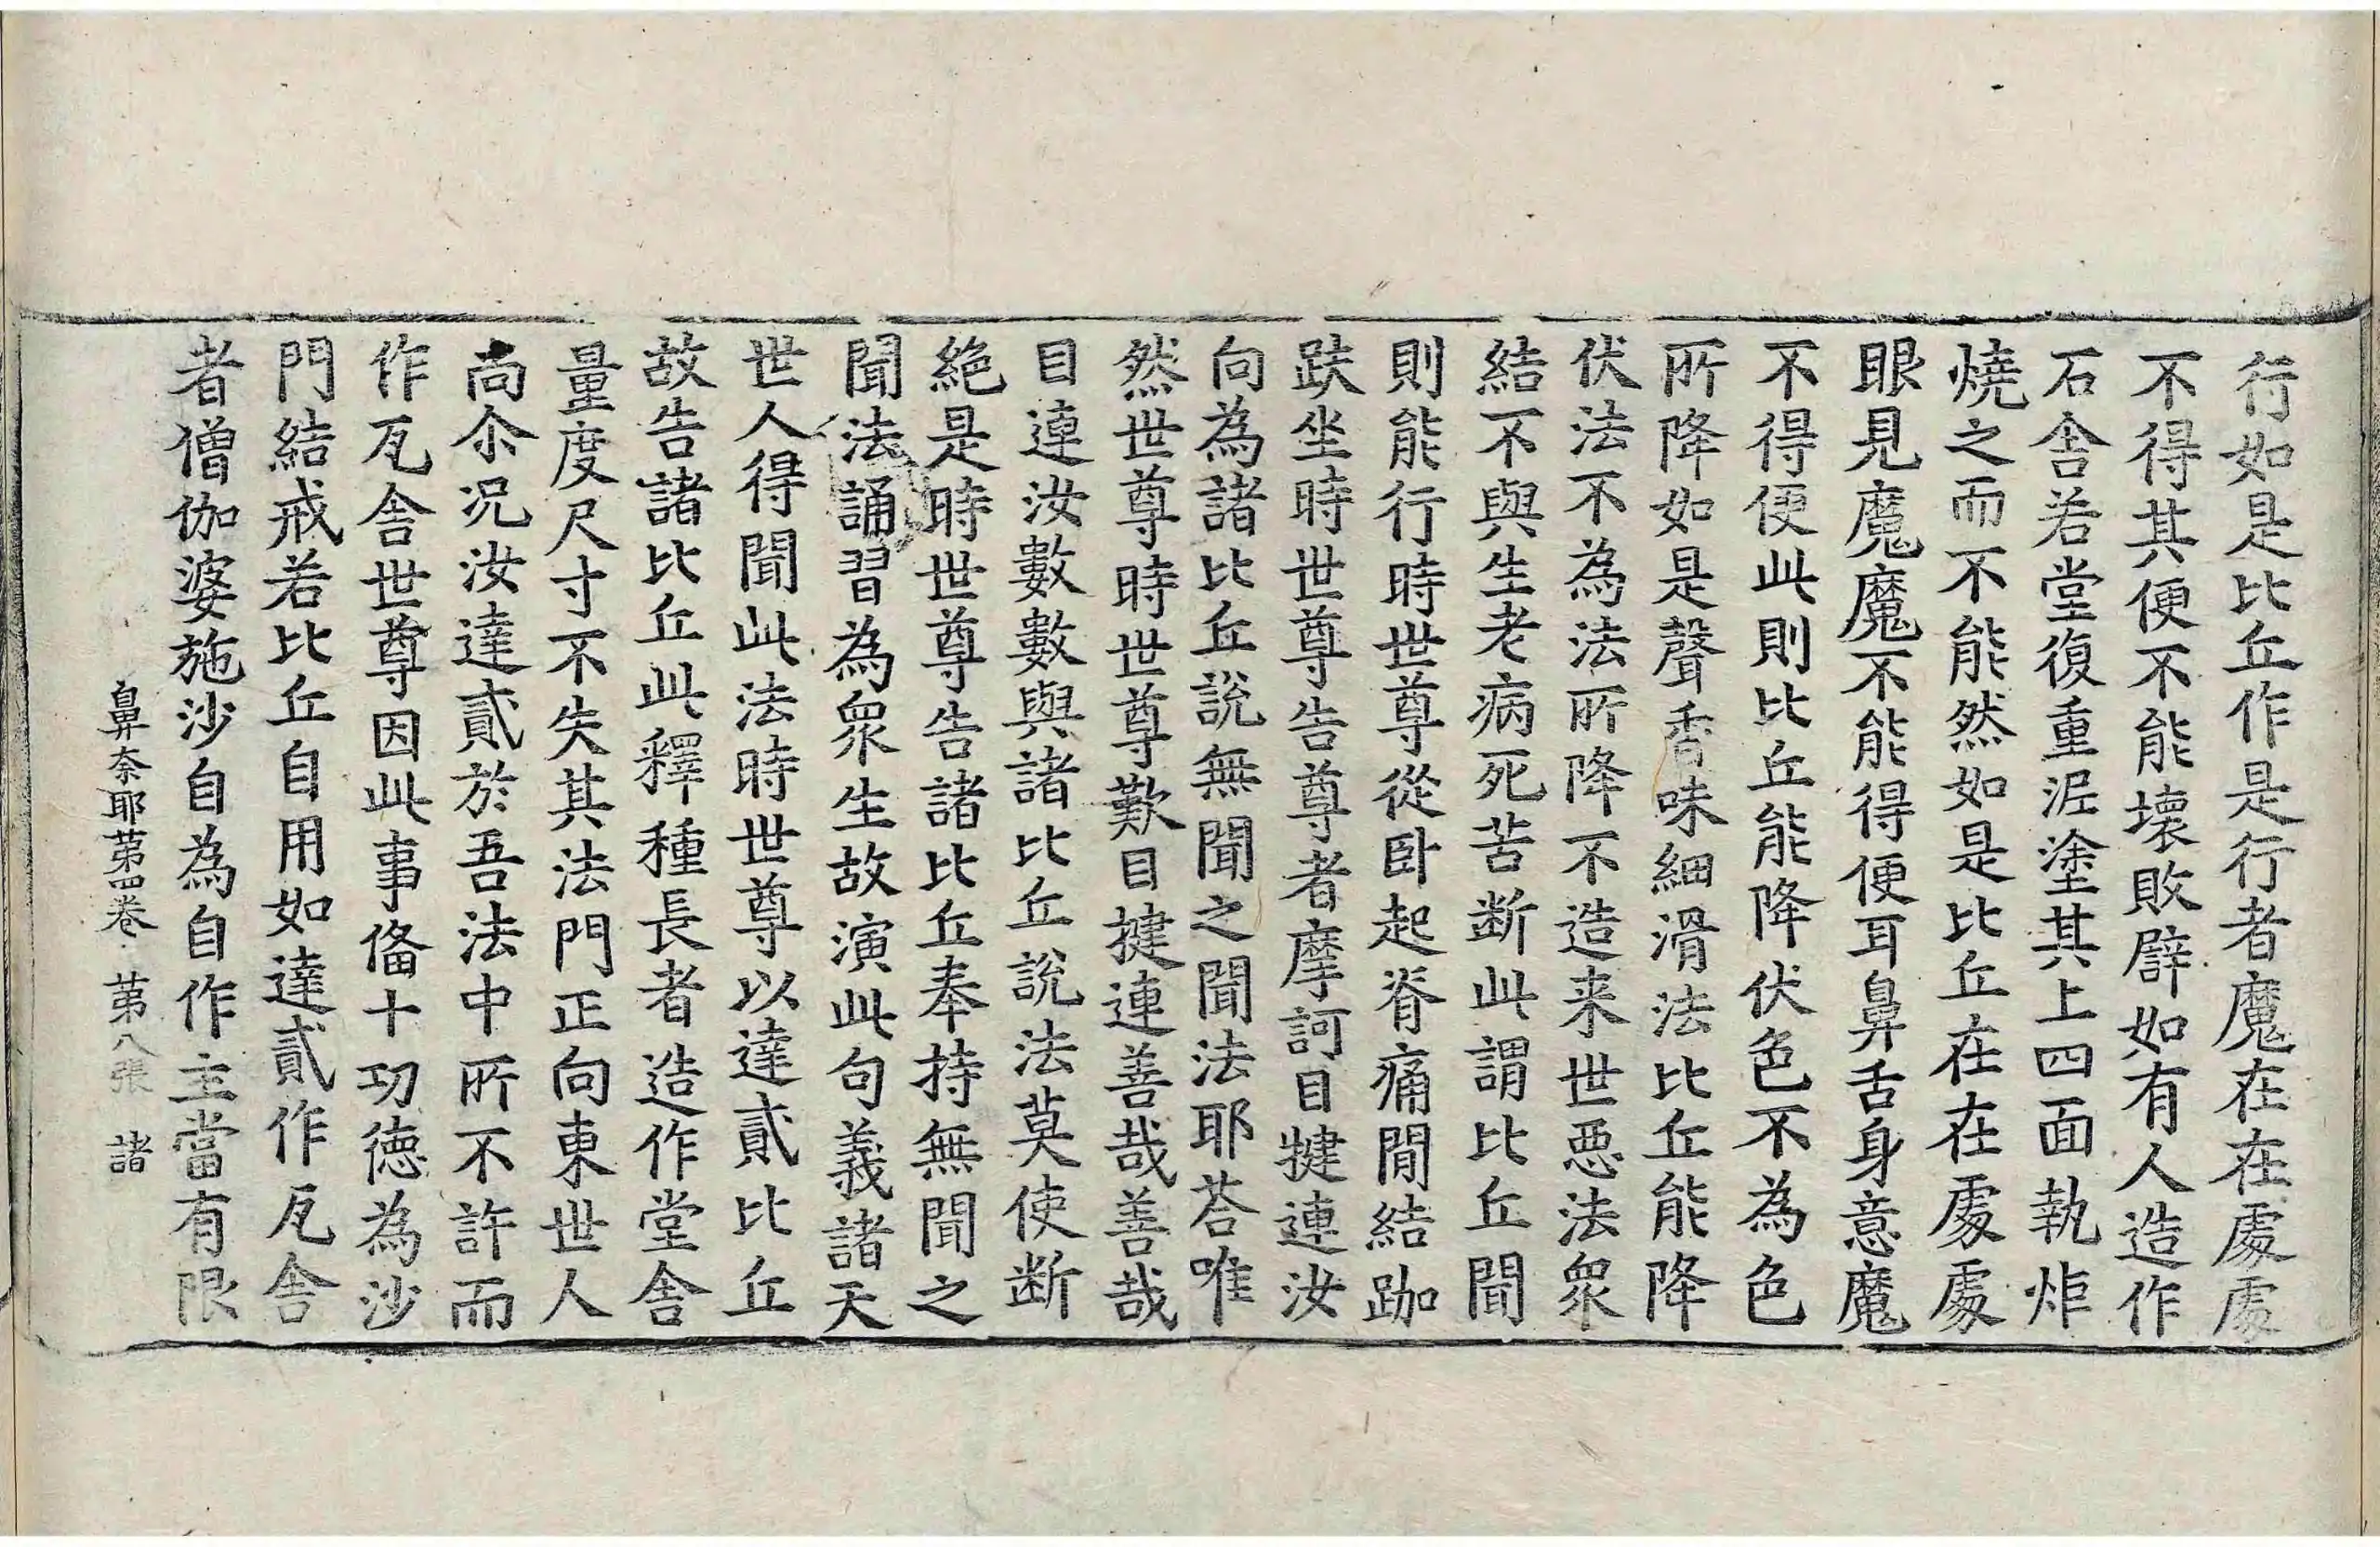 行如是比丘作是行者魔在在處處
不得其便不能壞敗辟如有人造作
石舍若堂復重泥塗其上四面執炬
燒之而不能然如是比丘在在處處
眼見魔魔不能得便耳鼻舌身意魔
不得便此則比丘能降伏色不為色
所降如是聲香味細滑法比丘能降
伏法不為法所降不造来世惡法衆
結不與生老病死苦断此謂比丘聞
則能行時世尊從卧起脊痛閒結跏
趺坐時世尊告尊者摩訶目揵連汝
向為諸比丘說無聞之聞法耶荅唯
然世尊時世尊歎目揵連善哉善哉
目連汝數數與諸比丘說法莫使断
絕是時世尊告諸比丘奉持無聞之
聞法誦習為衆生故演此句義諸天
世人得聞此法時世尊以達貳比丘
故告諸比丘此釋種長者造作堂舍
量度尺寸不失其法門正向東世人
尚尒况汝達貳於吾法中所不許而
作瓦舍世尊因此事俻十功德為沙
門結戒若比丘自用如達貳作瓦舍
者僧伽婆施沙自為自作主當有限
鼻奈耶苐四卷 苐八張 諸